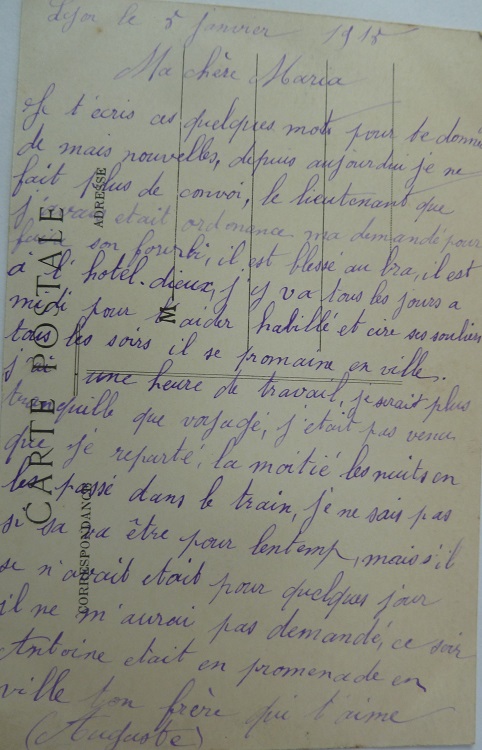 Lyon le 5 janvier 1915
Ma chère Maria
Je t'écris ces quelques mots pour te donné
de mais nouvelles, depuis aujourdui je ne
fait plus de convoi, le lieutenant que
j'avais etait ordonance ma demandé pour
faire son fourbi, il est blessé au bra, il est
à l'hotel-dieux, j'y va tous les jours a
midi pour l'aider habillé et cire ses souliers
tous les soirs il se promaine en ville.
j'ai une heure de travail, je serait plus
tranquille que voyagé, j'était pas venu
que je reparté, la moitié les nuits on
les passé dans le train, je ne sais pas
si sa va être pour lentemp, mais s'il
se n'avait etait pour quelques jour
il ne m'aurai pas demandé, ce soir
Antoine etait en promenade en
ville ton frère qui t'aime
(Auguste)
CARTE POSTALE
ADRESSE
CORRESPONDANCE
M